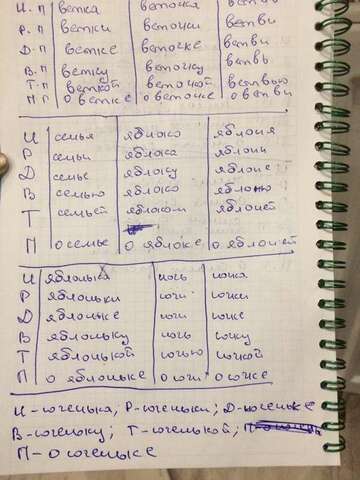 И.П ветка веточка
Р.П ветки веточки ветви
Д.П ветке веточке ветви
В.П ветку веточку ветвь
Т.П веткой веточкой ветвью
П П о ветке о веточке о ветви
И семья яблоко яблоня
Р семьи яблока яблони
Д семье яблоку яблоне
В семью яблоко яблоню
Т семьей яблоком яблоней
П о семье о яблоке о яблоней
И яблонька ночь ночка
Р яблоньки ночи ночки
Д яблоньке ночи ночке
В яблоньку ночь ночку
Т яблонькой ночью ночкой
П о яблоньке о ночи о ночке
И-ноченька, Р-ноченьки; Д-ноченьке
В-ноченьку; Т-ноченькой;
П-о ноченьке